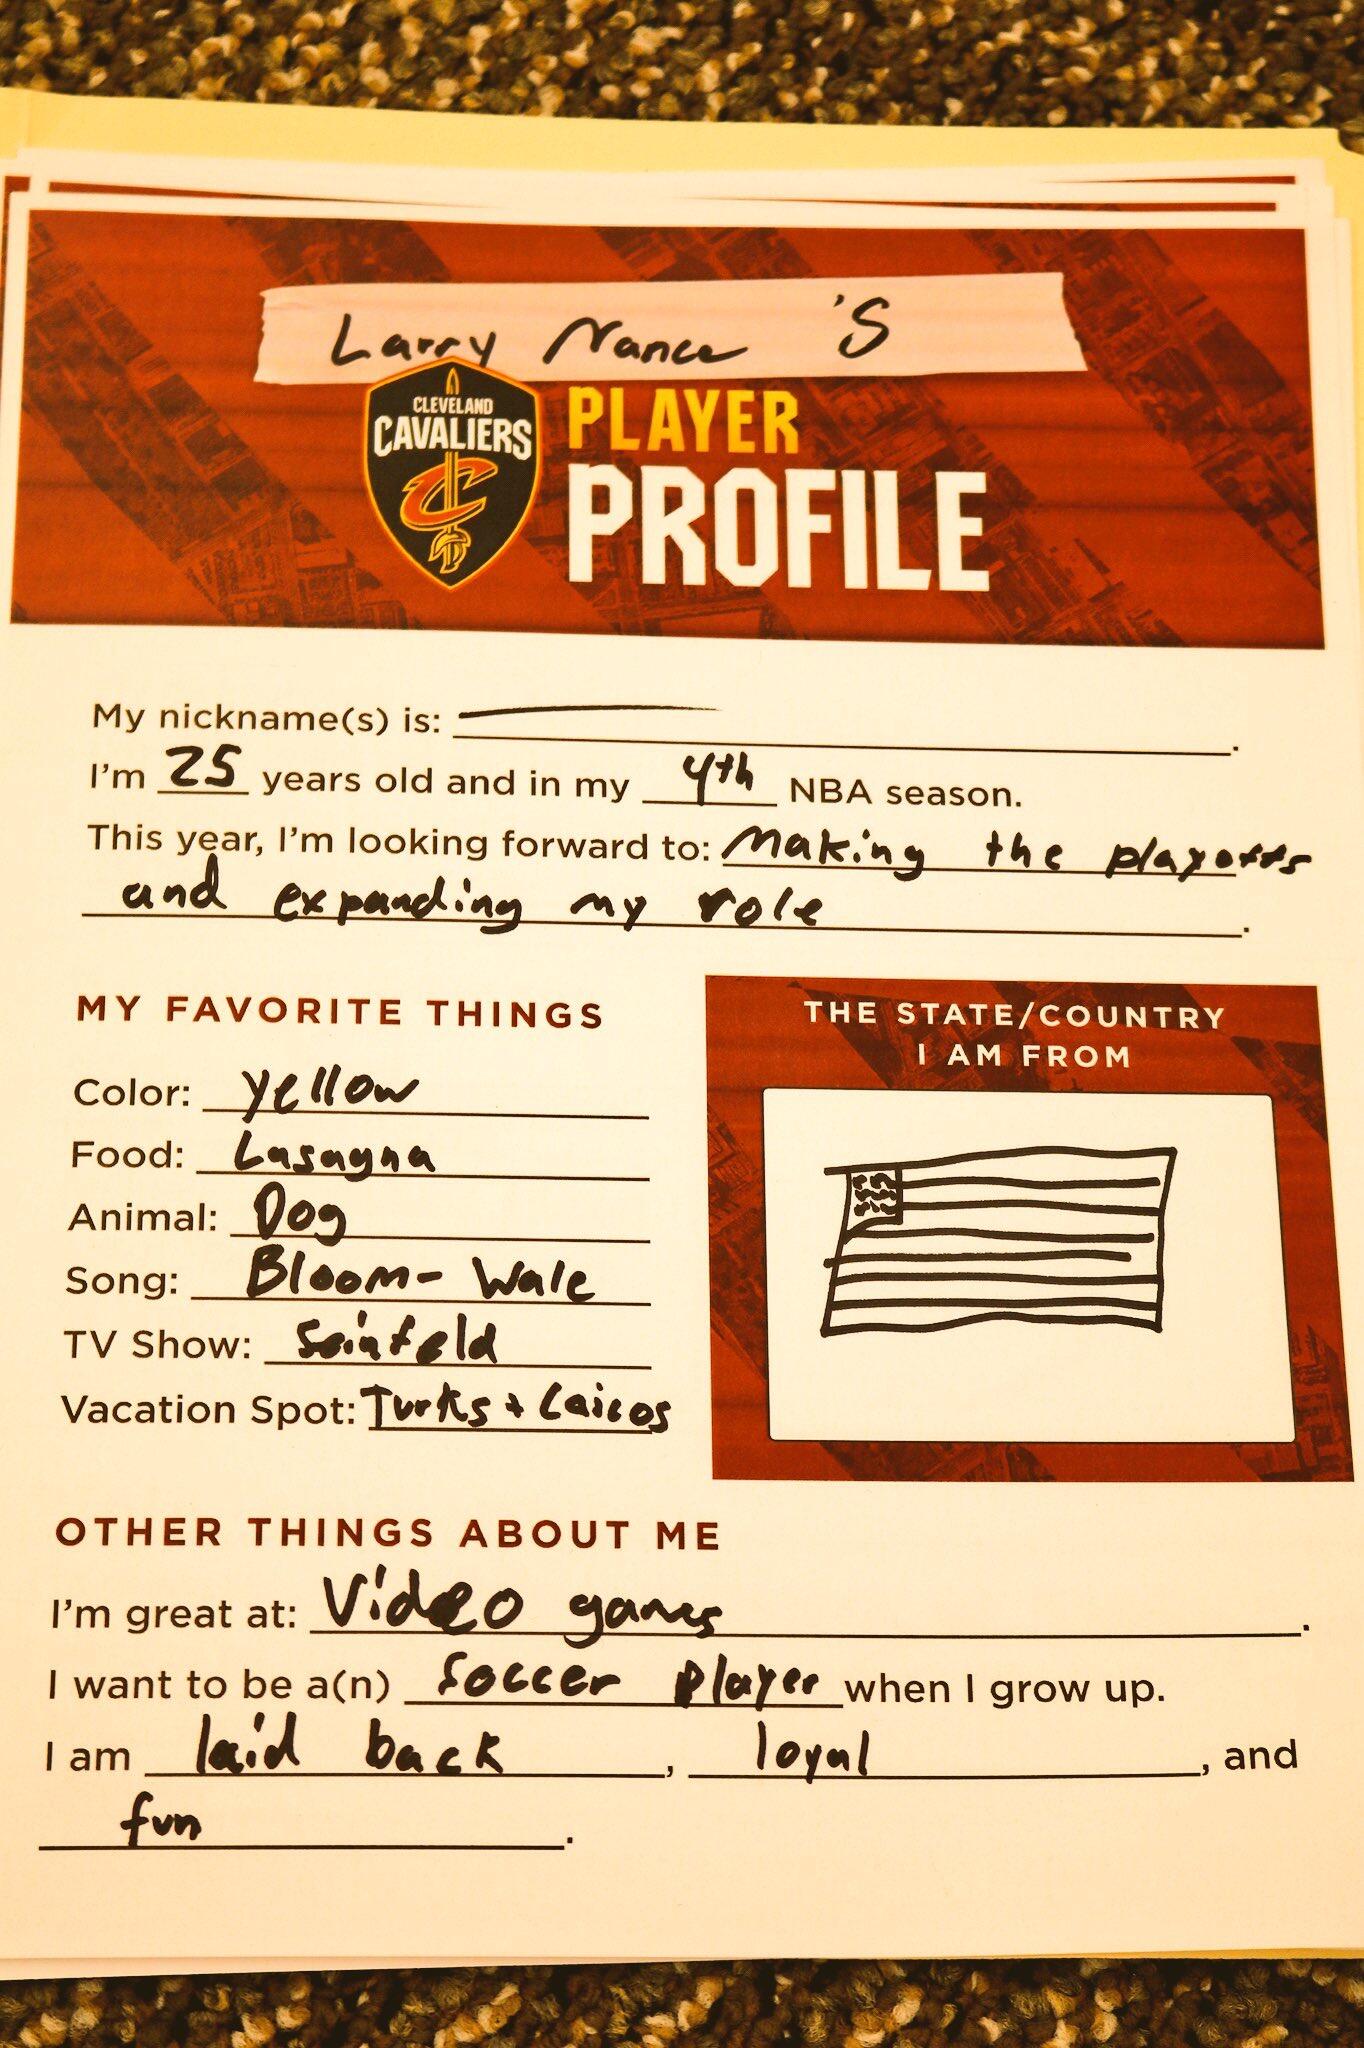 Larry Nance 's
CLEVELAND
CAVALIERS
C
PLAYER
PROFILE
My nickname(s) is: ——.
I'm 25 years old and in my 4th NBA season.
This year, I'm looking forward to: Making the playoffs
and expanding my role.
MY FAVORITE THINGS
Color: Yellow
Food: Lasagna
Animal: Dog
Song: Bloom- Wale
TV Show: Seinfeld
Vacation Spot: Turks + Caicos
THE STATE/COUNTRY
I AM FROM
OTHER THINGS ABOUT ME
I'm great at: Video games.
I want to be a(n) soccer player when I grow up.
I am laid back, loyal, and
fun.